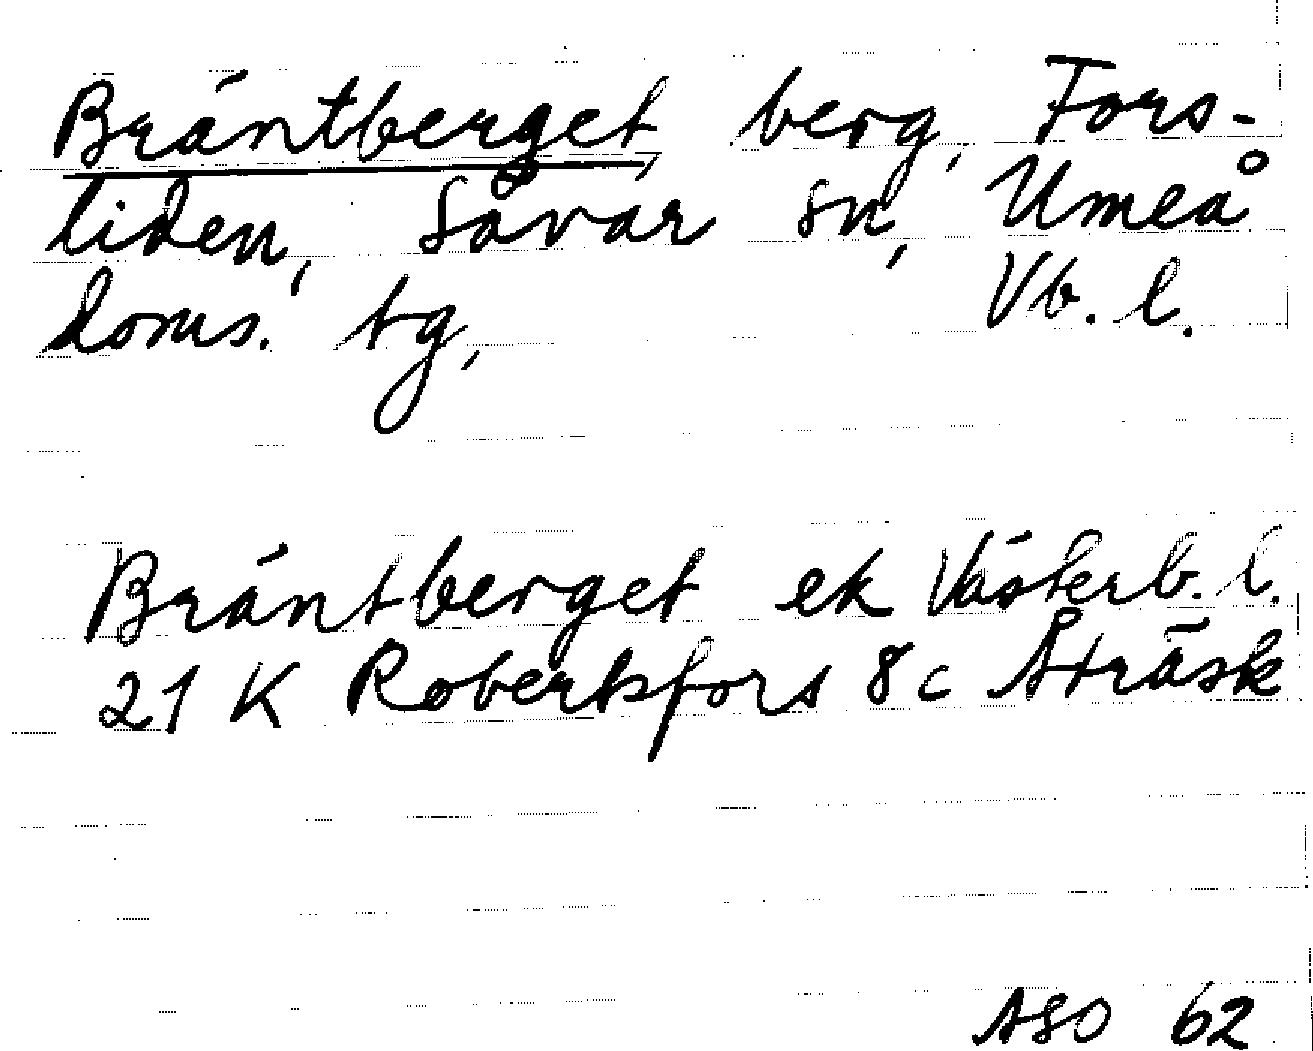 Bräntberget, berg, Fors-
liden, Sävar sn, Umeå
doms. tg, Vb. l.
Bräntberget ek Västerb. l.
21 K Robertsfors 8 c Åträsk
ASO 62